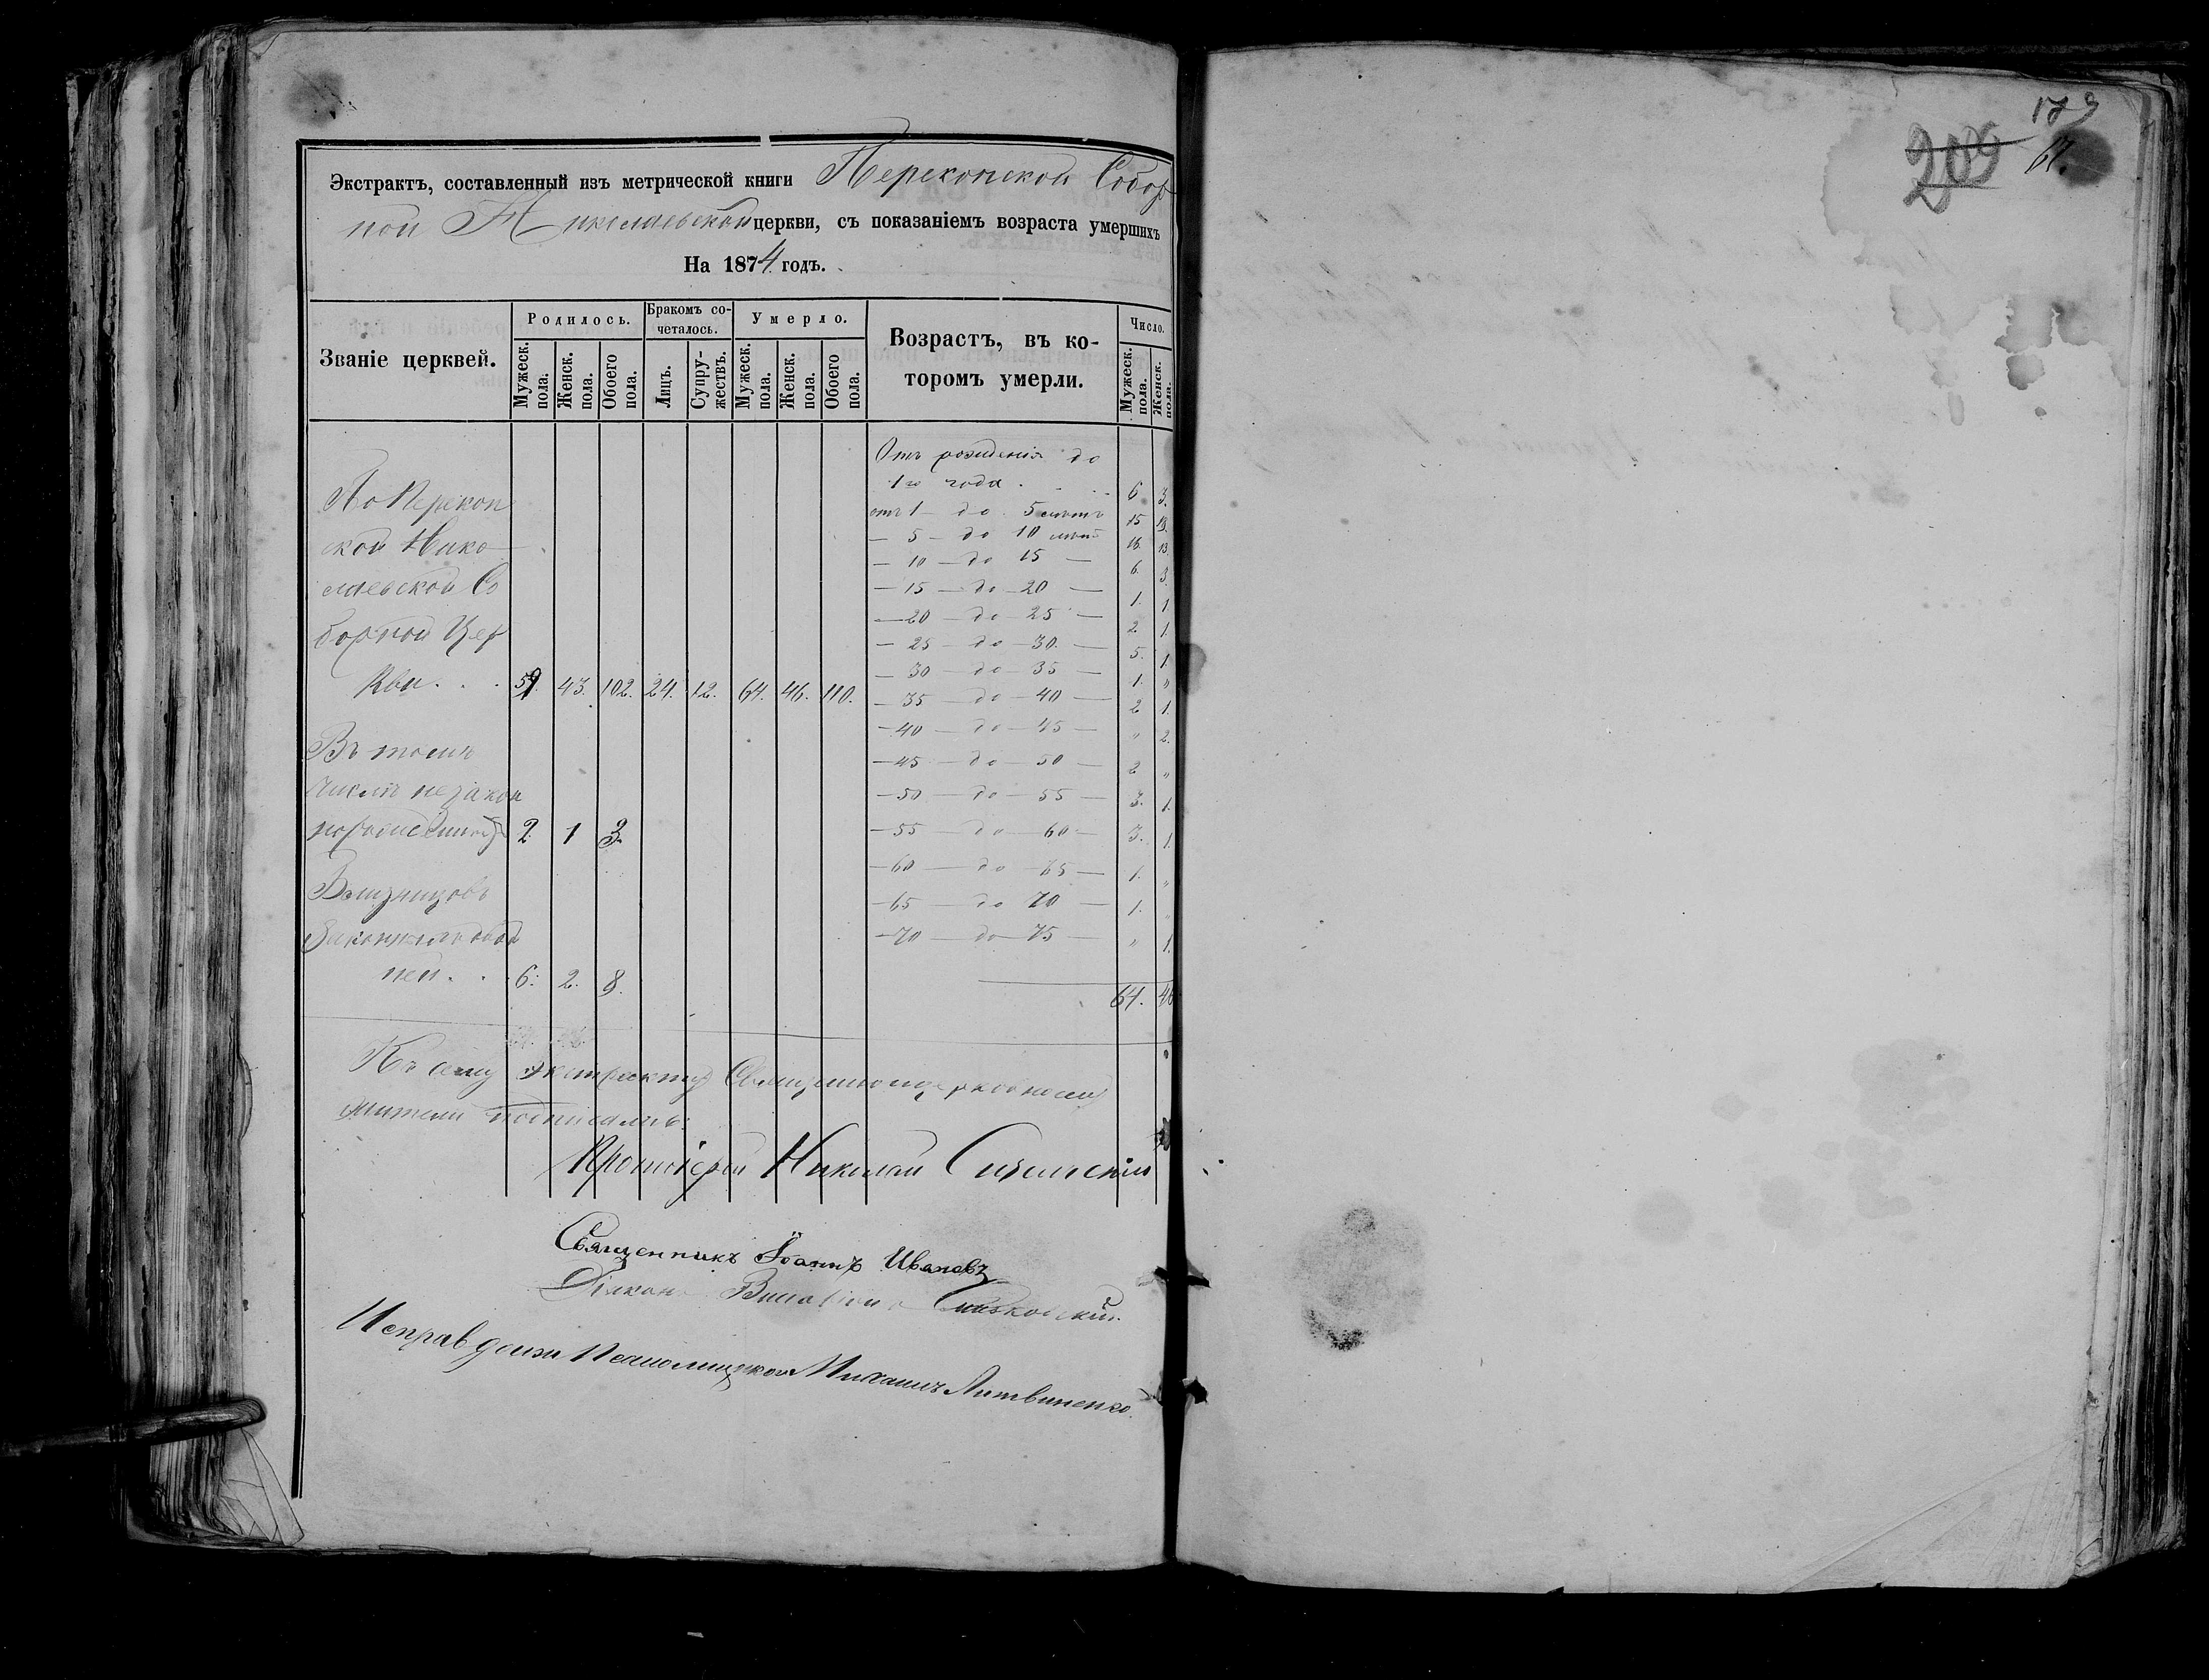 179
209 67.
Экстрактъ, составленный изъ метрической книги Перекопской Собор
ной Николаевской церкви, съ показаніемъ возраста умершихъ
На 1874 годъ.
Званіе церквей.
Родилось.
Мужеск. пола.
Женск. пола.
Обоего пола.
Бракомъ со-
четалось.
Лицъ.
Супру-
жествъ.
Умерло.
Мужеск. пола.
Женск. пола.
Обоего пола.
Возрастъ, въ ко-
торомъ умерли.
Число.
Мужеск. пола.
Женск. пола.
По Перекоп
ской Нико
лаевской Со
борной Цер
кви . . . 59. 43. 102. 24. 12. 64. 46. 110.
Въ томъ
числѣ незакон
норожденныхъ 2. 1 3.
Близнецовъ
ней . . 6. 2. 8.
Отъ рожденія до
1го года . . . . 6 3.
отъ 1 – до 5 лѣтъ 15 13.
— 5 – до 10 лѣтъ 16. 13.
— 10 – до 15 — 6. 3.
— 15 – до – 20 — 1. 1
— 20 – до – 25 — 2 1.
— 25 – до – 30. — 5. 1.
— 30 – до – 35 — 1. „
— 35 – до – 40 — 2 1.
— 40 – до – 45 — „ 2.
— 45 – до – 50 — 2 „
— 50 – до – 55 — 3. 1.
— 55 – до – 60 — 3. 1.
— 60 – до – 65 — 1. „
— 65 – до 70 — 1. „
— 70 – до – 75 — „ 1.
64. 46
Къ сему экстракту Священноцерковнослу
жители подписались:
Протоіерей Николай
Священникъ Іоаннъ Ивановъ
Діаконъ
Исправ долж Псаломщика Михаилъ Литвиненко.